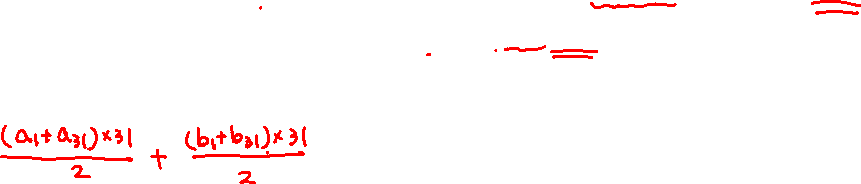 (a₁+a₃₁)×31/2 + (b₁+b₃₁)×31/2